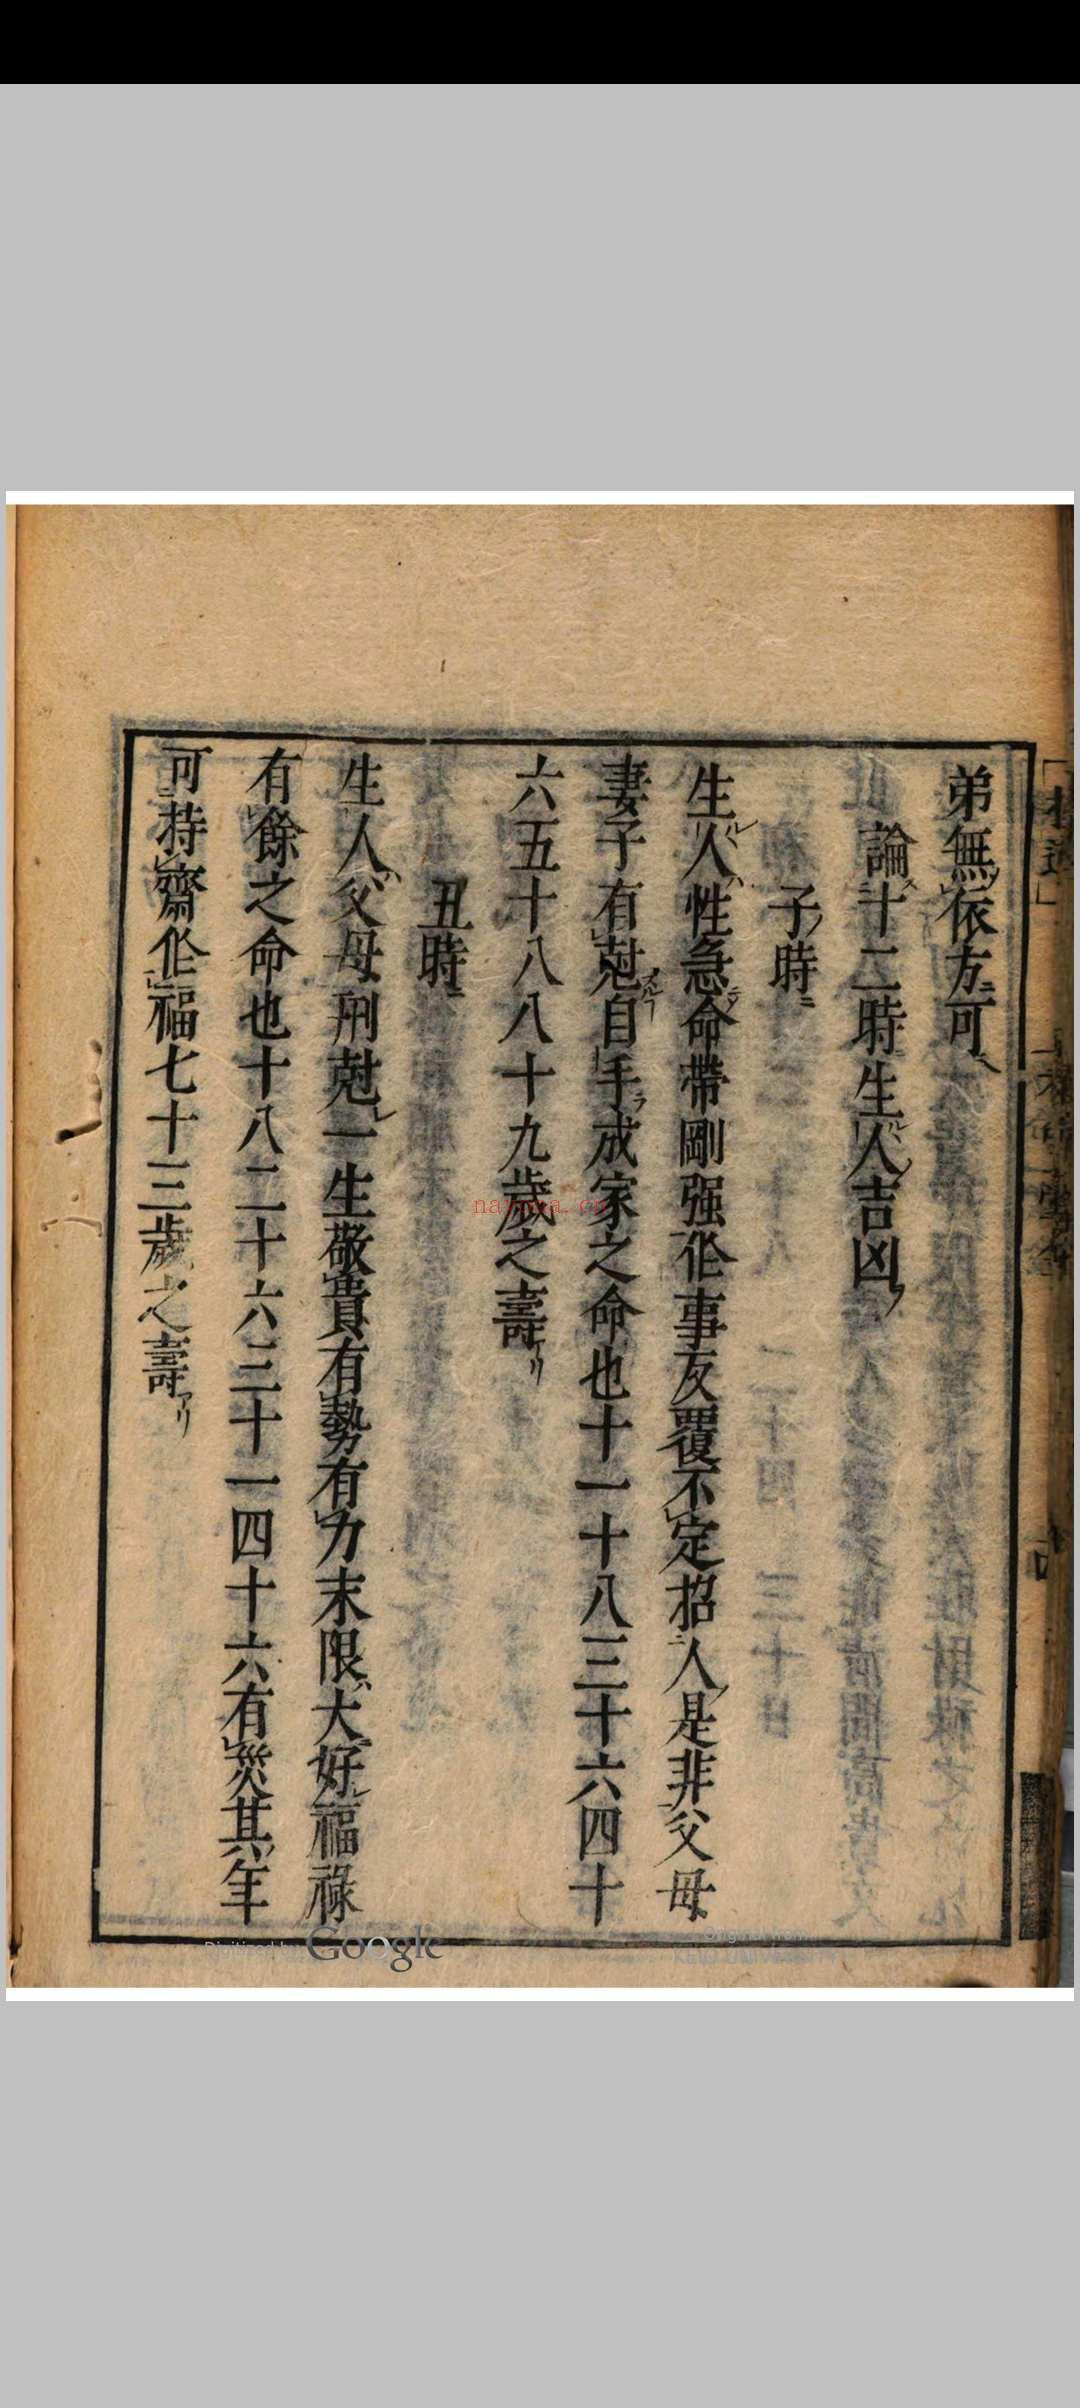 弟無依方可
論十二時生人吉凶
子時
生人性急命帶剛强作事反覆不定招人是非父母
妻子有尅自手成家之命也十一十八三十六四十
六五十八八十九歲之壽アリ
丑時
生人父母刑尅一生敬貴有勢有力末限大好福祿
有餘之命也十八二十六三十一四十六有災其年
可持齋作福七十三歲之壽アリ
nayona.cn
Digitized by Google
Original from